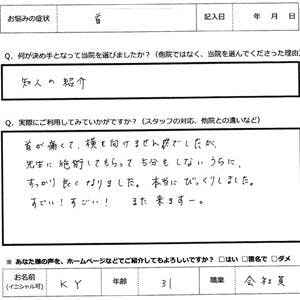 お悩みの症状 首 記入日 年 月 日
Q．何が決め手となって当院を選びましたか？（他院ではなく、当院を選んでくださった理由）
知人の紹介
Q．実際にご利用してみていかがですか？（スタッフの対応、他院との違いなど）
首が痛くて、横を向けませんでしたが、
先生に施術してもらって 5分もしないうちに、
すっかり良くなりました。本当にびっくりしました。
すごい！すごい！ また来ますー。
※ あなた様の声を、ホームページなどでご紹介してもよろしいですか？ □はい □匿名で □ダメ
お名前 KY 年齢 31 職業 会社員
（イニシャル可）